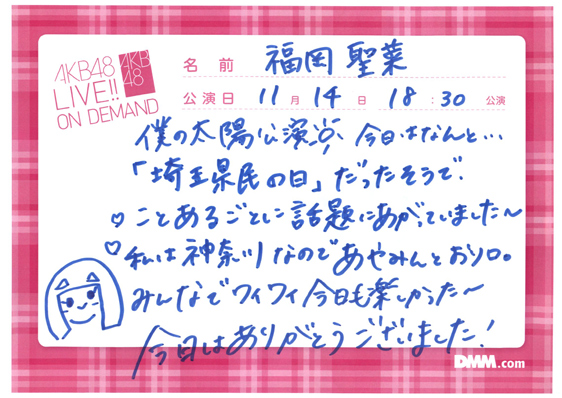 AKB48
LIVE!!
ON DEMAND
AKB
48
名前 福岡 聖菜
公演日 11月14日 18:30公演
僕の太陽公演♪ 今日はなんと…
「埼玉県民の日」だったそうで、
♡ ことあるごとに話題にあがっていました〜
♡ 私は神奈川なのであやみんとおソロ。
みんなでワイワイ今日も楽しかった〜
今日はありがとうございました!
DMM.com